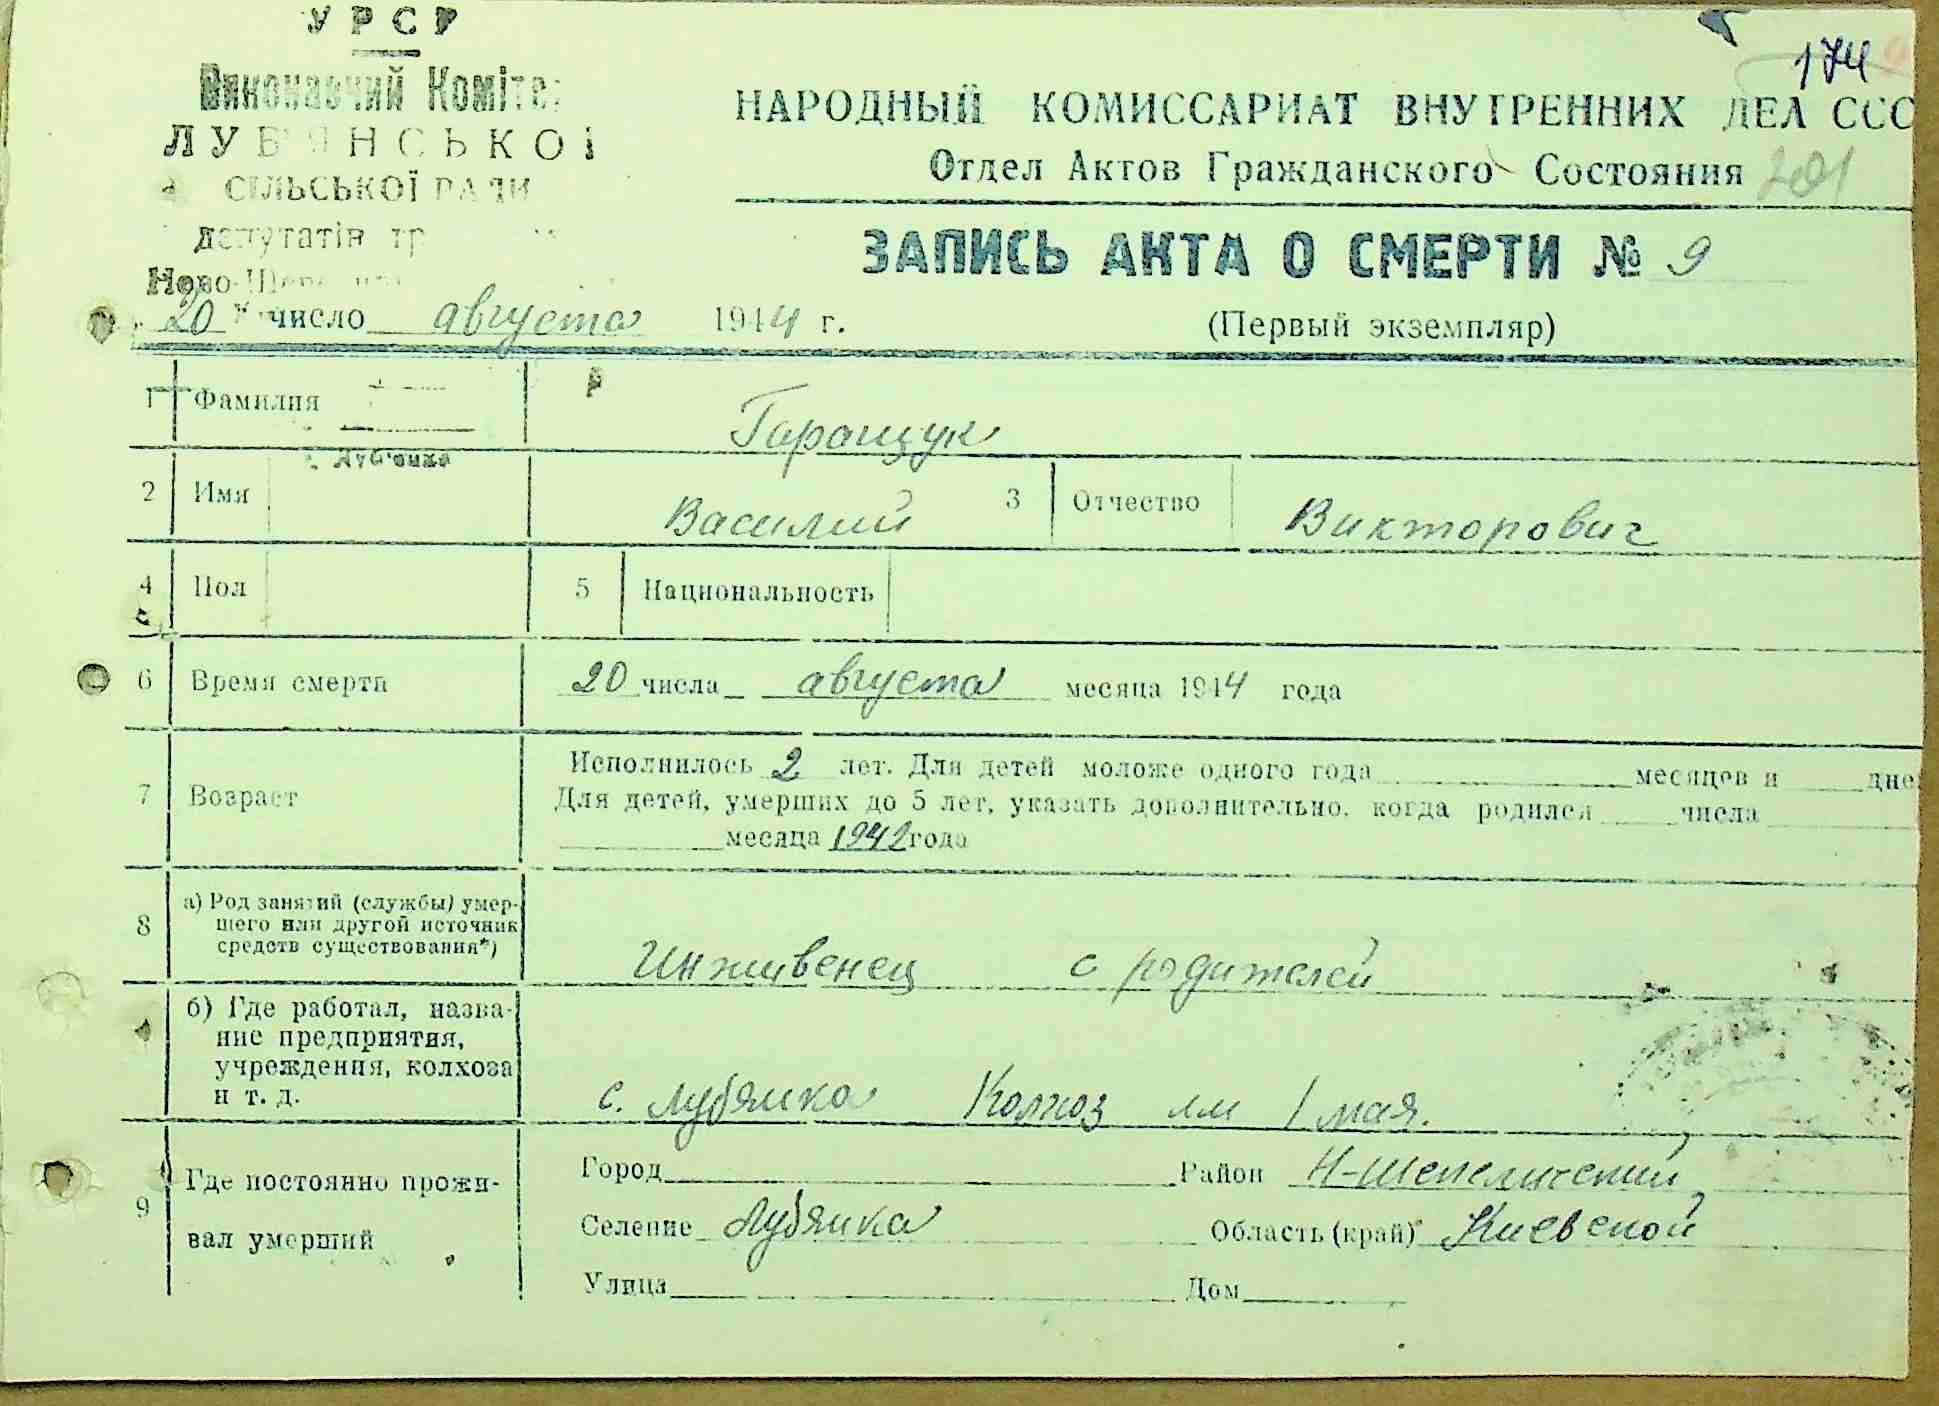 УРСР
Виконавчий Коміте
ЛУБ'ЯНСЬКОЇ
СІЛЬСЬКОЇ РАДИ
депутатів тр
Ново-Шепе
174
НАРОДНЫЙ КОМИССАРИАТ ВНУТРЕННИХ ДЕЛ ССС
Отдел Актов Гражданского Состояния 201
ЗАПИСЬ АКТА О СМЕРТИ № 9
20 число августа 1944 г.
(Первый экземпляр)
1 Фамилия Гаращук
с. Луб'янка
2 Имя Василий 3 Отчество Викторович
4 Пол 5 Национальность
6 Время смерти 20 числа августа месяца 1944 года
7 Возраст Исполнилось 2 лет. Для детей моложе одного года месяцев и дне
Для детей, умерших до 5 лет, указать дополнительно, когда родился числа
месяца 1942 года
8 а) Род занятий (службы) умер-
шего или другой источник
средств существования*)
Инживенец с родителей
б) Где работал, назва-
ние предприятия,
учреждения, колхоза
и т. д.
с. Лубянка Колхоз им 1 мая.
9 Где постоянно прожи-
вал умерший
Город Район Н-Шепеличский
Селение Лубянка Область (край) Киевской
Улица Дом